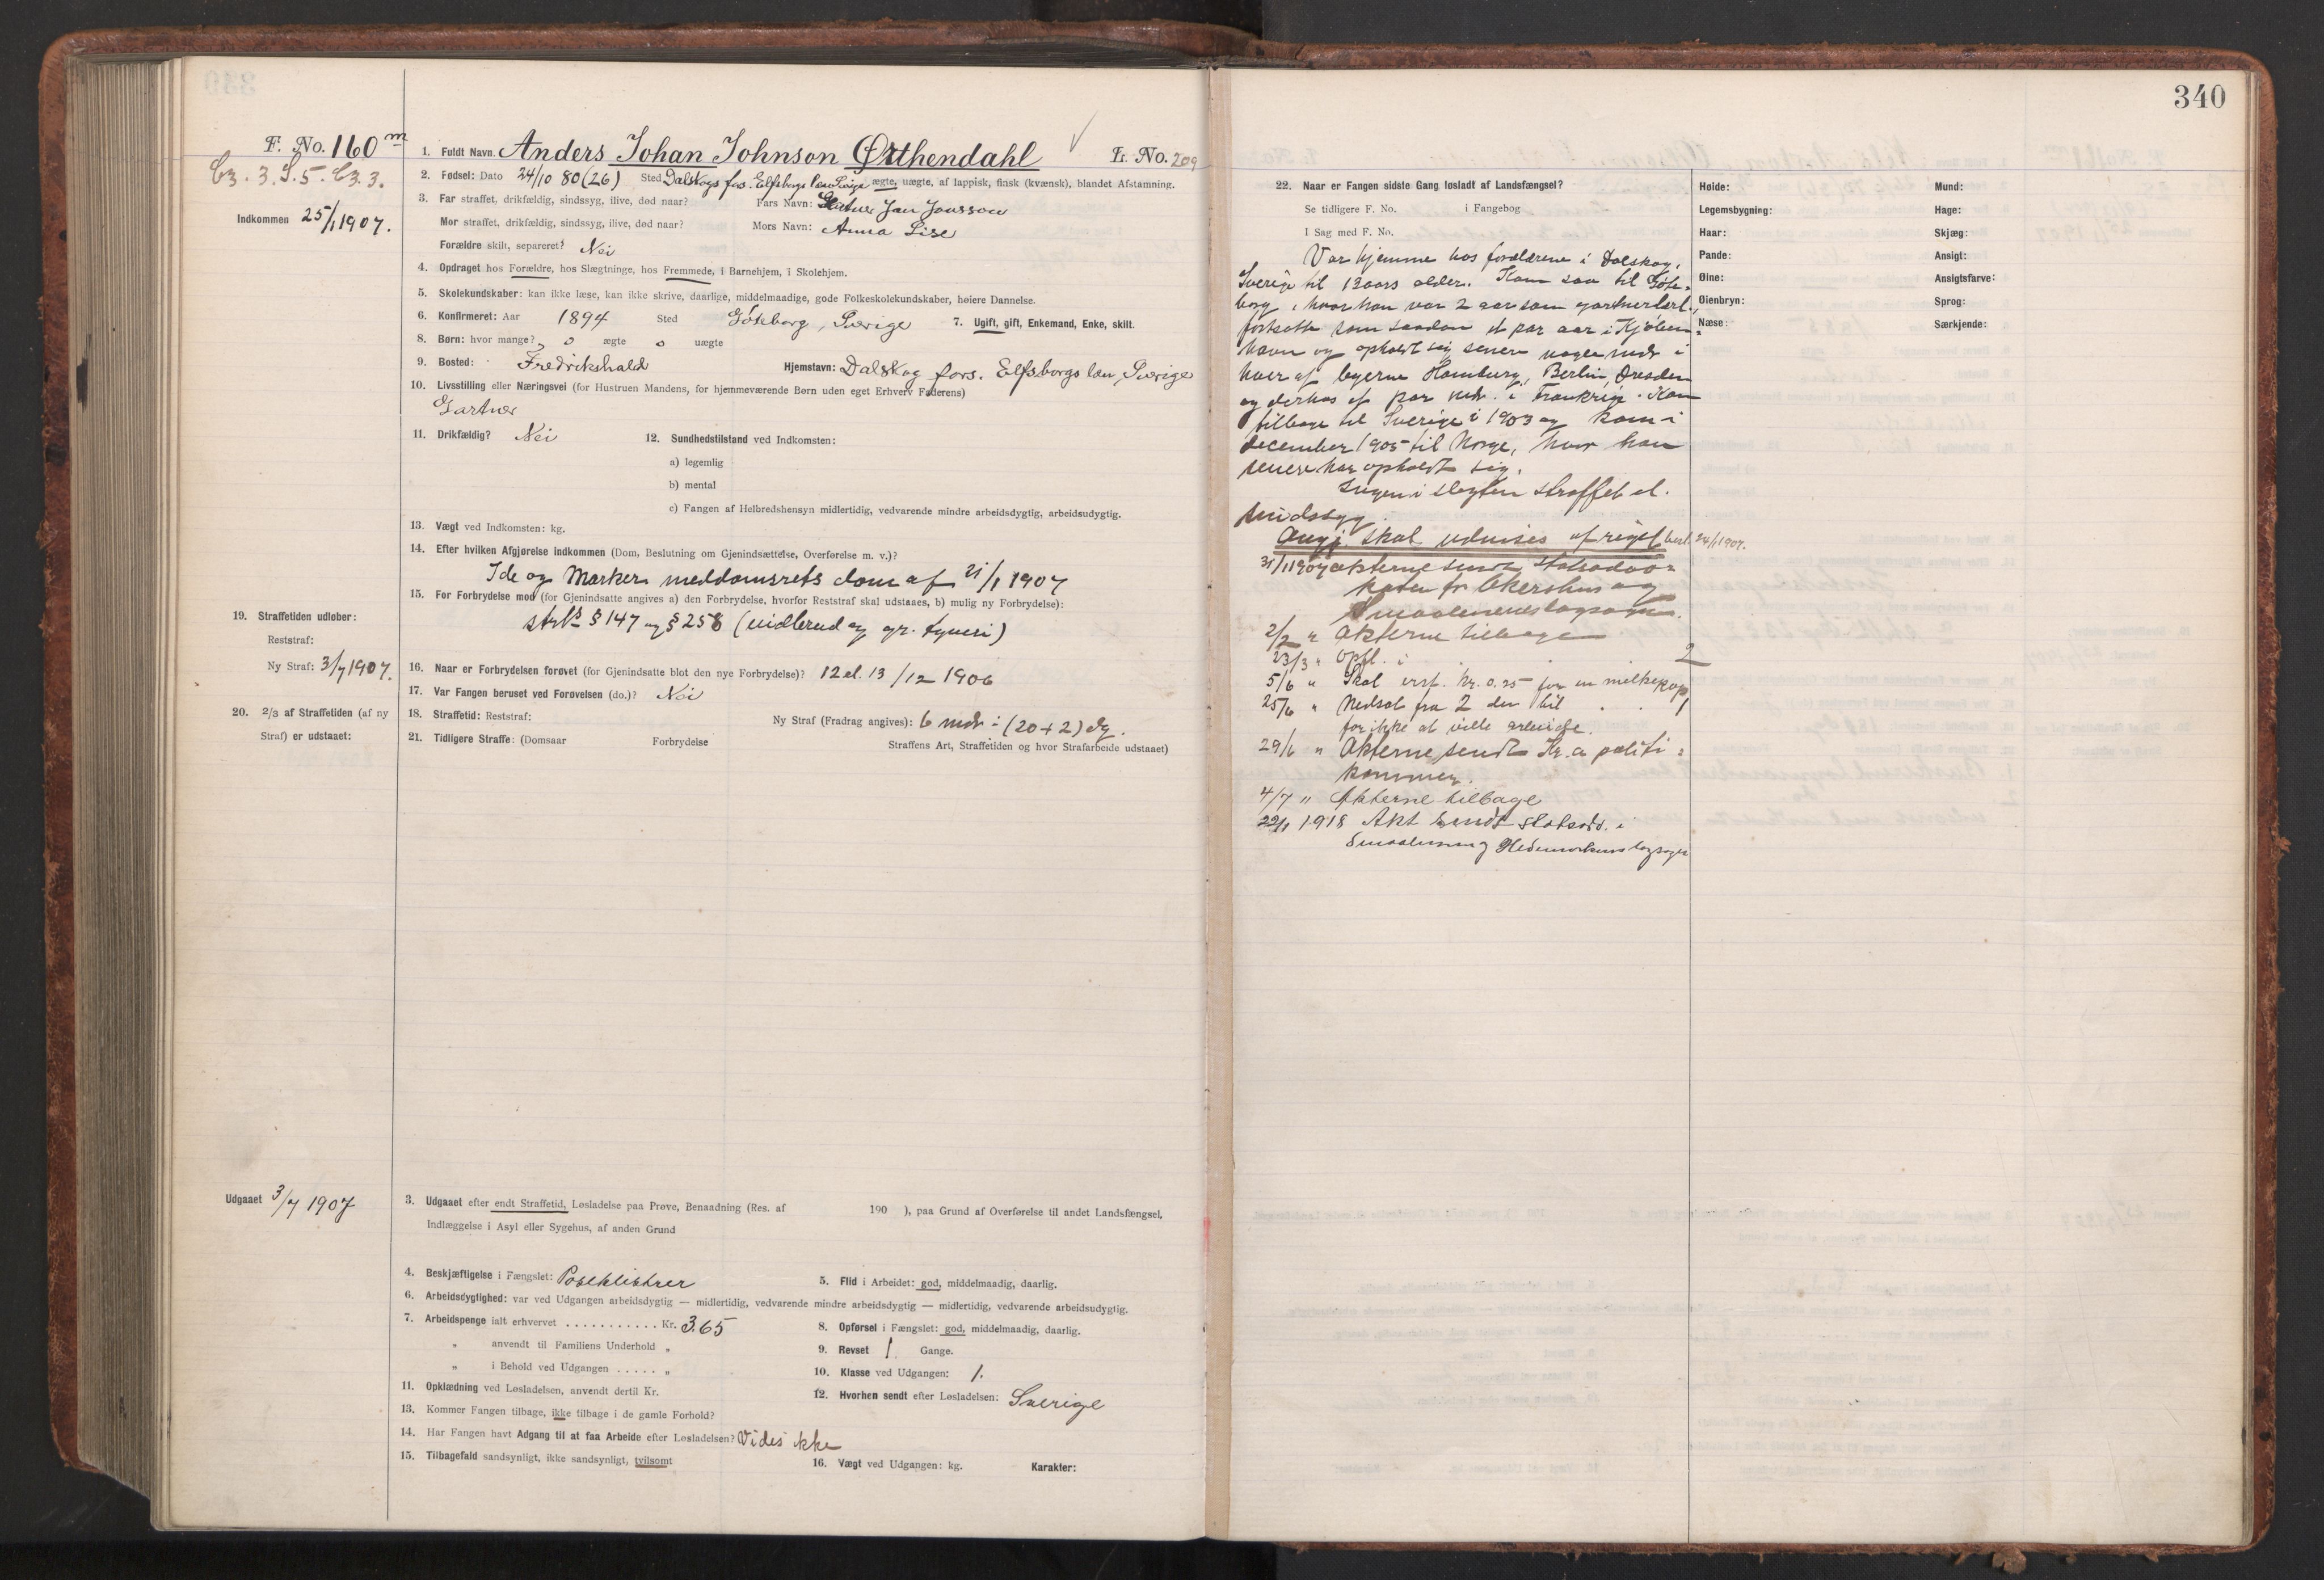 340
F. No. 160 m
1. Fuldt Navn. Anders Johan Johnson Østhendahl Li. No. 209
2. Fødsel: Dato 24/10 80 (26) Sted Dalskogs fors. Elfsborgs Sverige ægte, uægte, af lappisk, finsk (kvænsk), blandet Afstamning.
Indkommen 25/1 1907.
3. Far straffet, drikfældig, sindssyg, ilive, død naar? Fars Navn: Jan Jonsson
Mor straffet, drikfældig, sindssyg, ilive, død naar? Mors Navn: Anna Lise
Forældre skilt, separeret? Nei
4. Opdraget hos Forældre, hos Slægtninge, hos Fremmede, i Barnehjem, i Skolehjem.
5. Skolekundskaber: kan ikke læse, kan ikke skrive, daarlige, middelmaadige, gode Folkeskolekundskaber, høiere Dannelse.
6. Konfirmeret: Aar 1894 Sted Göteborg, Sverige 7. Ugift, gift, Enkemand, Enke, skilt.
8. Børn: hvor mange? 0 ægte 0 uægte
9. Bosted: Fredrikshald Hjemstavn: Dalskog fors. Elfsborgs län, Sverige
10. Livsstilling eller Næringsvei (for Hustruen Mandens, for hjemmeværende Børn uden eget Erhverv Faderens)
Gartner
11. Drikfældig? Nei 12. Sundhedstilstand ved Indkomsten:
a) legemlig
b) mental
c) Fangen af Helbredshensyn midlertidig, vedvarende mindre arbeidsdygtig, arbeidsudygtig.
13. Vægt ved Indkomsten: kg.
14. Efter hvilken Afgjørelse indkommen (Dom, Beslutning om Gjenindsættelse, Overførelse m. v.)?
Ide og Markers meddomsrets dom af 21/1 1907
15. For Forbrydelse mod (for Gjenindsatte angives a) den Forbrydelse, hvorfor Reststraf skal udstaaes, b) mulig ny Forbrydelse):
strl's § 147 og § 258 (indbrud og gr. tyveri)
19. Straffetiden udløber:
Reststraf:
Ny Straf: 3/7 1907.
16. Naar er Forbrydelsen forøvet (for Gjenindsatte blot den nye Forbrydelse)? 12 el. 13/12 1906
17. Var Fangen beruset ved Forøvelsen (do.)? Nei
20. 2/3 af Straffetiden (af ny
Straf) er udstaaet:
18. Straffetid: Reststraf: Ny Straf (Fradrag angives): 6 mdr ÷ (20+2) dg.
21. Tidligere Straffe: (Domsaar Forbrydelse Straffens Art, Straffetiden og hvor Strafarbeide udstaaet)
Udgaaet 3/7 1907
3. Udgaaet efter endt Straffetid, Løsladelse paa Prøve, Benaadning (Res. af 190 ), paa Grund af Overførelse til andet Landsfængsel,
Indlæggelse i Asyl eller Sygehus, af anden Grund
4. Beskjæftigelse i Fængslet: Poseklistrer 5. Flid i Arbeidet: god, middelmaadig, daarlig.
6. Arbeidsdygtighed: var ved Udgangen arbeidsdygtig — midlertidig, vedvarende mindre arbeidsdygtig — midlertidig, vedvarende arbeidsudygtig.
7. Arbeidspenge ialt erhvervet ........... Kr. 3.65 8. Opførsel i Fængslet: god, middelmaadig, daarlig.
„ anvendt til Familiens Underhold „ 9. Revset 1. Gange.
„ i Behold ved Udgangen ..... „ 10. Klasse ved Udgangen: 1.
11. Opklædning ved Løsladelsen, anvendt dertil Kr. 12. Hvorhen sendt efter Løsladelsen: Sverige
13. Kommer Fangen tilbage, ikke tilbage i de gamle Forhold?
14. Har Fangen havt Adgang til at faa Arbeide efter Løsladelsen? Vides ikke
15. Tilbagefald sandsynligt, ikke sandsynligt, tvilsomt 16. Vægt ved Udgangen: kg. Karakter:
22. Naar er Fangen sidste Gang løsladt af Landsfængsel?
Se tidligere F. No. i Fangebog
I Sag med F. No.
Var hjemme hos forældrene i Dalskog,
Sverige til 12 aars alder. Kom saa til Göte-
borg, hvor han var 2 aar som gartnerlærl.,
fortsatte som saadan et par aar i Kjøben-
havn og opholdt sig senere nogle mdr i
hver af byerne Hamburg, Berlin, Dresden
og derhos et par mdr. i Frankrige. Kom
tilbage til Sverige i 1903 og kom i
december 1905 til Norge, hvor han
senere har opholdt sig.
Ingen i slegten straffet el.
sindssyg.
Angj. skal udvises af riget besl. 24/1 1907.
31/1 1907 akterne sendt Statsadvo-
katen for Akershus og
Smaalenenes lagsogn.
2/2 " Akterne tilbage
23/3 " Opfl. i . . . 2
5/6 " Skal erst. kr. 0.25 for en melkekop
25/6 " Nedsat fra 2 den til . . 1
for ikke at ville arbeide.
29/6 " Akterne sendt Kr.a politi-
kammer.
4/7 " Akterne tilbage
22/1 1918 Akt sendt statsadv. i
Smaalenene og Hedemarkens lagsogn
Høide:
Legemsbygning:
Haar:
Pande:
Øine:
Øienbryn:
Næse:
Mund:
Hage:
Skjæg:
Ansigt:
Ansigtsfarve:
Sprog:
Særkjende: